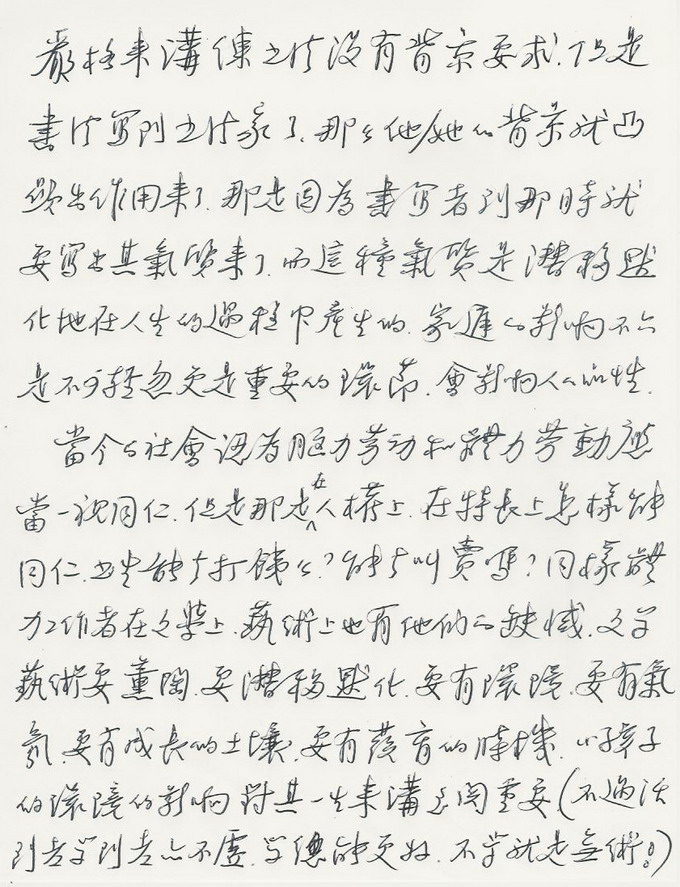 嚴格来講練书法没有背景要求.但是
書法写到书法家了.那么他/她的背景就凸
顯出作用来了.那是因為書写者到那時就
要写出其氣質来了.而這種氣質是潜移默
化地在人生的過程中產生的.家庭的影响不亦
是不可轻忽更是重要的環節.會影响人的品性.
當今的社會認為脑力劳动和體力劳動應
當一視同仁.但是那是在人格上.在特長上怎樣能
同仁.书生能去打铁么?能去叫賣嗎?同樣體
力工作者在文學上.藝術上也有他们的缺憾.文学
藝術要薰陶.要潜移默化.要有環境.要有氣
氛.要有成長的土壤.要有發育的時機.小孩子
的環境的影响對其一生来講至関重要(不過活
到老学到老亦不虚.学總能更好.不学就是無術!)